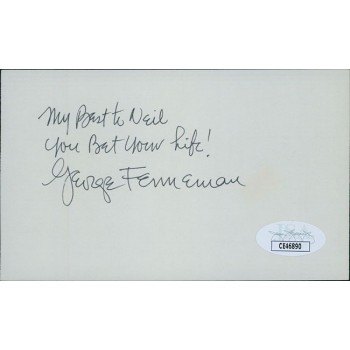 My Best to Neil
You Bet Your Life!
George Fenneman
CE46890